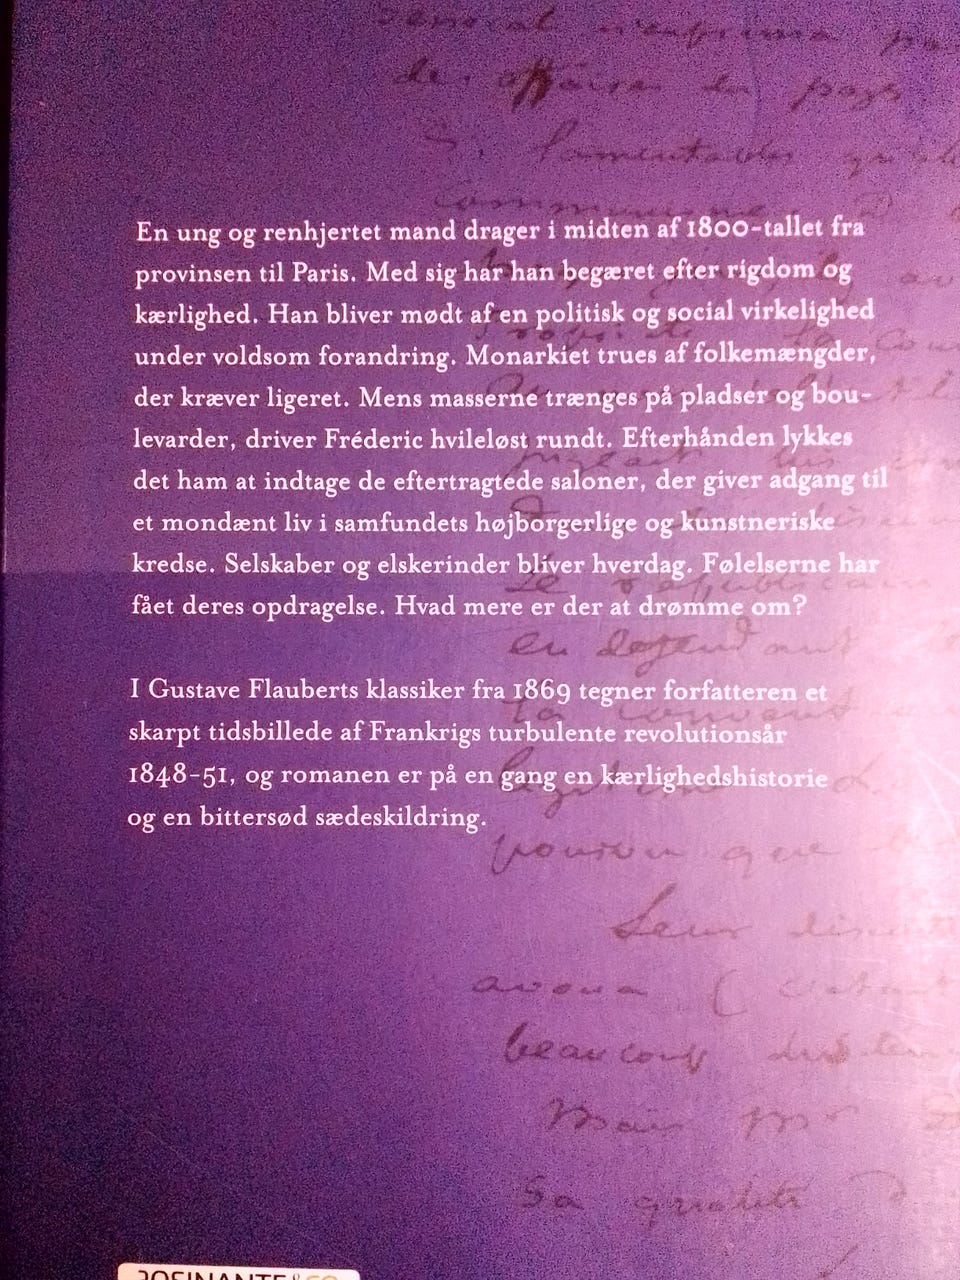 de affaires du pays
3.
En ung og renhjertet mand drager i midten af 1800-tallet fra
provinsen til Paris. Med sig har han begæret efter rigdom og
kærlighed. Han bliver mødt af en politisk og social virkelighed
under voldsom forandring. Monarkiet trues af folkemængder,
der kræver ligeret. Mens masserne trænges på pladser og bou-
levarder, driver Fréderic hvileløst rundt. Efterhånden lykkes
det ham at indtage de eftertragtede saloner, der giver adgang til
et mondænt liv i samfundets højborgerlige og kunstneriske
kredse. Selskaber og elskerinder bliver hverdag. Følelserne har
fået deres opdragelse. Hvad mere er der at drømme om?
I Gustave Flauberts klassiker fra 1869 tegner forfatteren et
skarpt tidsbillede af Frankrigs turbulente revolutionsår
1848-51, og romanen er på en gang en kærlighedshistorie
og en bittersød sædeskildring.
Leur
beaucoup
Mais Mr
sa
ROSINANTE&CO